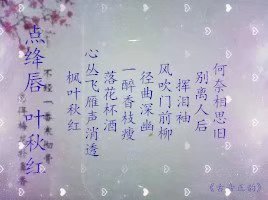 点绛唇 叶秋红
枫叶秋红
心丛飞雁声消透
落花杯酒
一醉香枝瘦
径曲深幽
风吹门前柳
挥泪袖
别离人后
何奈相思旧
不经一番寒彻骨
《古今正韵》